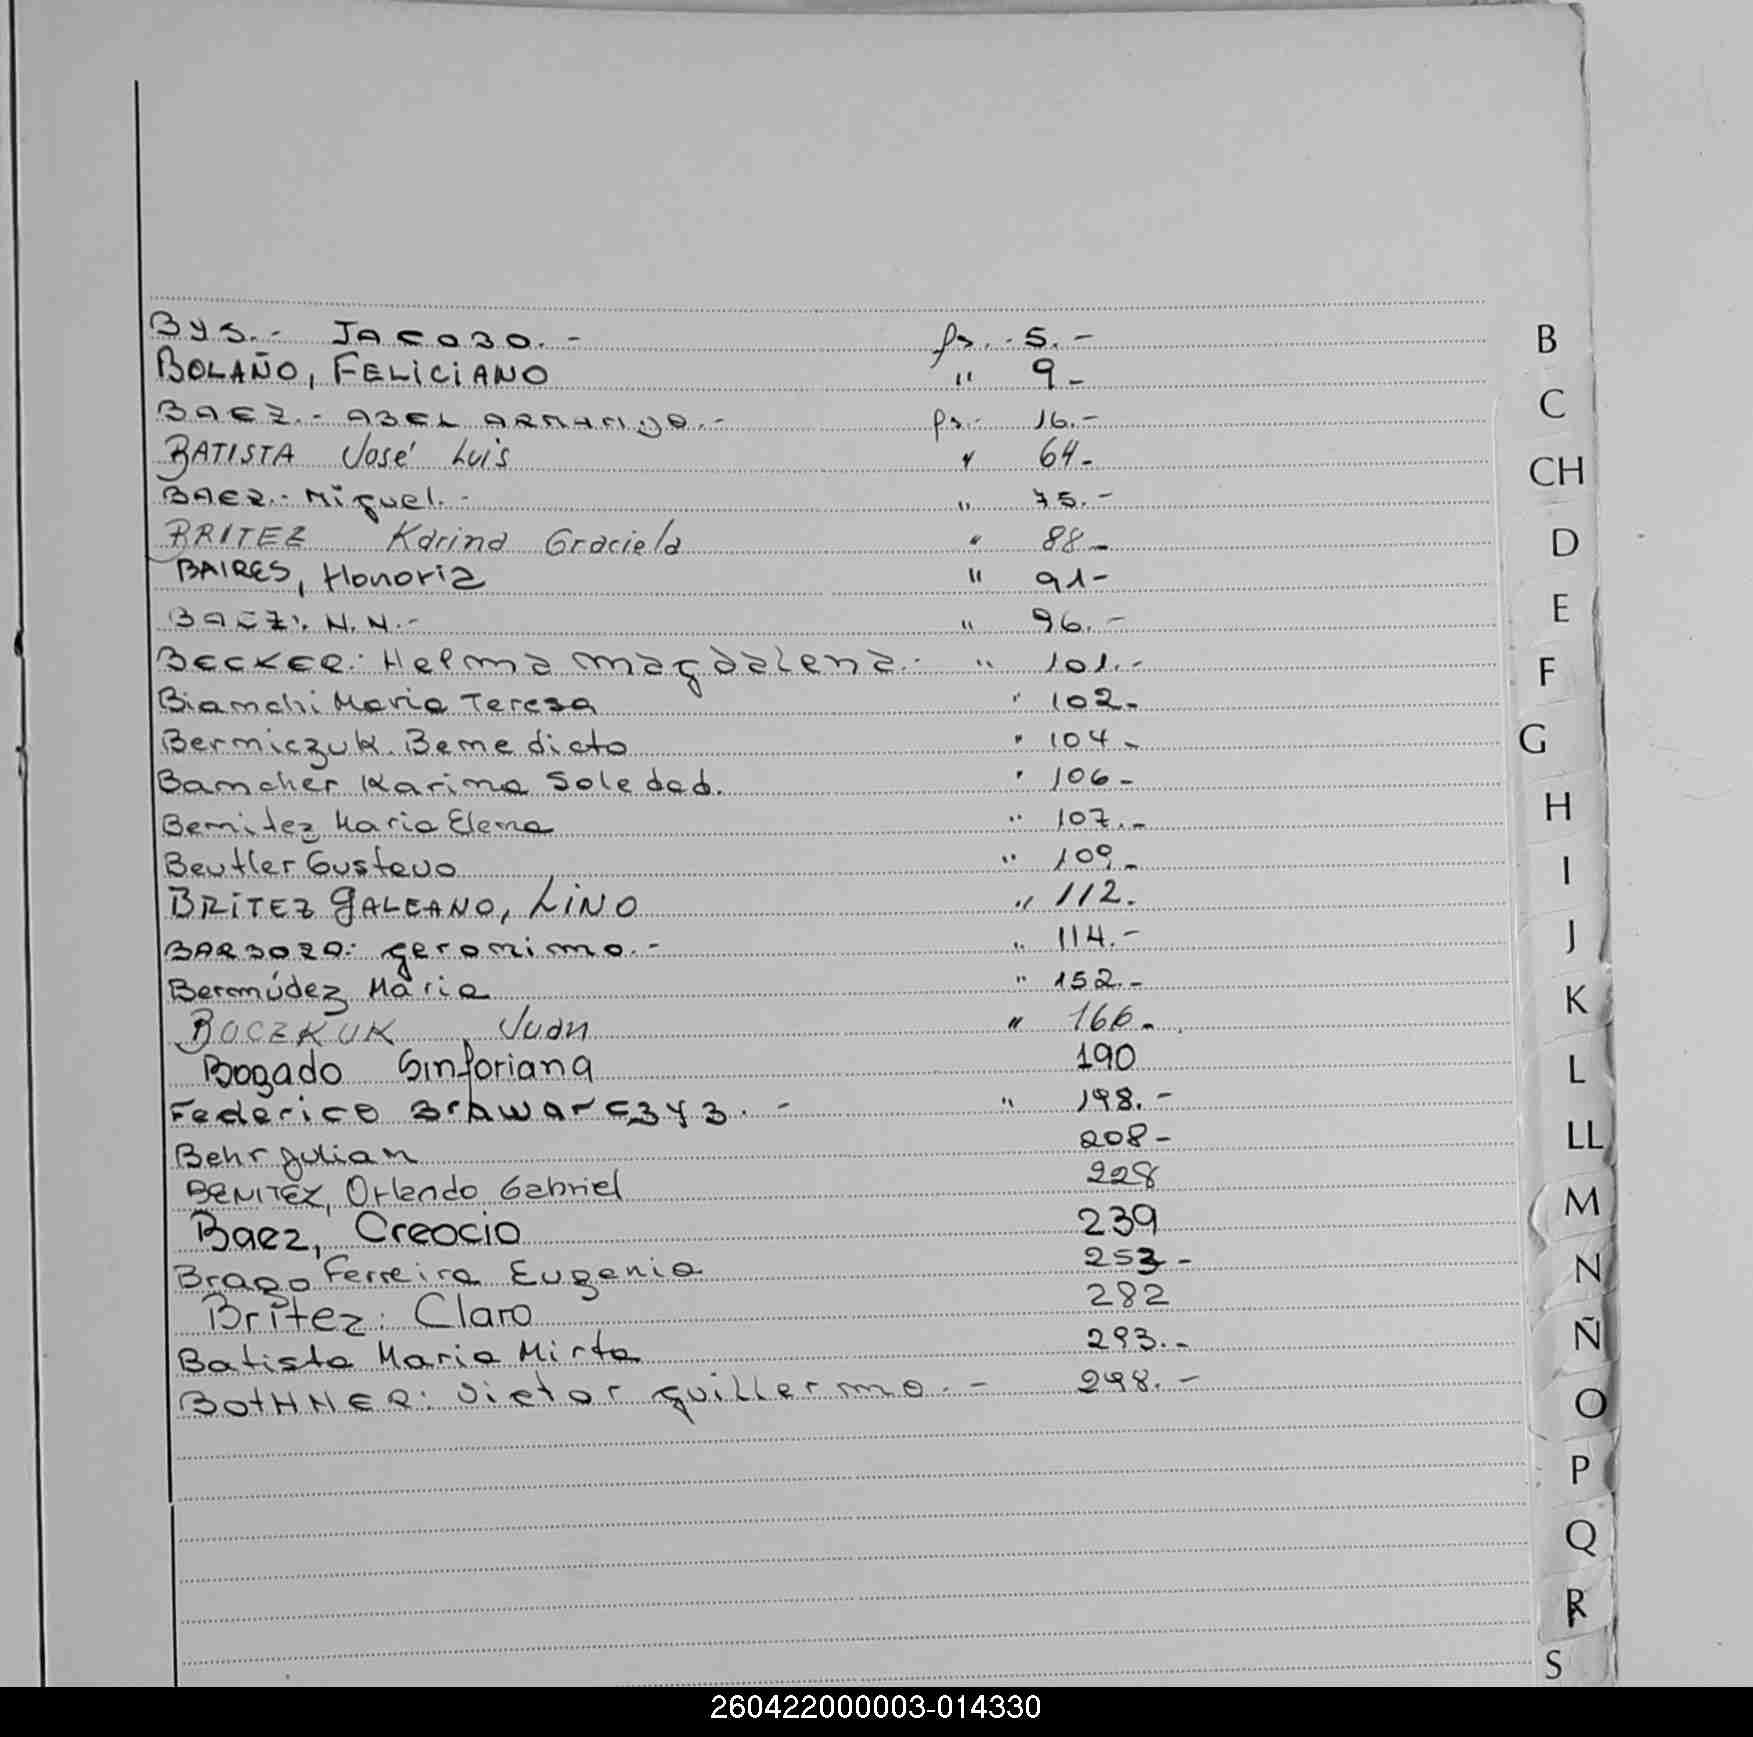 BYS.- JACOBO.- fs.. 5.-
BOLAÑO, FELICIANO " 9-
BAEZ.- ABEL ARMANDO.- fs.- 16.-
BATISTA José Luis " 64-
BAEZ.- Miguel.- " 75.-
BRITEZ Karina Graciela " 88-
BAIRES, Honoria " 91-
BAEZ: N.N.- " 96.-
BECKER: Helma Magdalena.- " 101.-
Bianchi Maria Teresa " 102-
Berniczuk Benedicto " 104-
Bancher Karina Soledad. " 106-
Benitez Maria Elena " 107.-
Beutler Gustavo " 109.-
BRITEZ GALEANO, LINO " 112.
BARBOZA: Geronimo.- " 114.-
Bermúdez Maria " 152.-
BOCZKUK Juan " 166-
Bogado Sinforiana 190
Federico 198.-
Behr Julian 208-
BENITEZ, Orlando Gabriel 228
Baez, Creocio 239
Brago Ferreira Eugenio 253-
Britez: Claro 282
Batista Maria Mirta 293.-
BOTHNER: Victor Guillermo.- 298.-
B
C
CH
D
E
F
G
H
I
J
K
L
LL
M
N
Ñ
O
P
Q
R
S
260422000003-014330